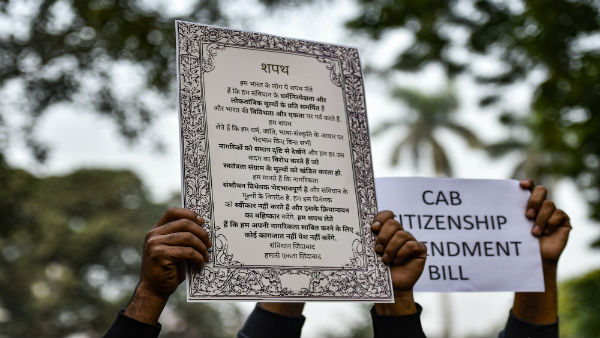 शपथ
हम भारत के लोग ये शपथ लेते
हैं कि हम संविधान के धर्मनिरपेक्षता और
लोकतांत्रिक मूल्यों के प्रति समर्पित हैं
और भारत की विविधता और एकता पर गर्व करते हैं.
हम शपथ
लेते हैं कि हम धर्म, जाति, भाषा-संस्कृति के आधार पर
भेदभाव किए बिना सभी
नागरिकों को समान दृष्टि से देखेंगे और हम हर उस
कदम का विरोध करते हैं जो
स्वतंत्रता संग्राम के मूल्यों को खंडित करता हो.
हम मानते हैं कि नागरिकता
संशोधन विधेयक भेदभावपूर्ण है और संविधान के
मूल्यों के विपरीत है. हम इस विधेयक
को स्वीकार नहीं करते हैं और इसके क्रियान्वयन
का बहिष्कार करेंगे. हम शपथ लेते
हैं कि हम अपनी नागरिकता साबित करने के लिए
कोई कागजात नहीं पेश नहीं करेंगे.
संविधान ज़िंदाबाद
हमारी एकता ज़िंदाबाद
CAB
CITIZENSHIP
ENDMENT
BILL